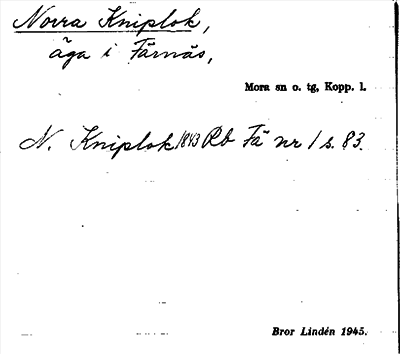 Norra Kniplok,
äga i Färnäs,
Mora sn o. tg, Kopp. l.
N. Kniplok 1843 Rb Fä nr 1 s. 83.
Bror Lindén 1945.